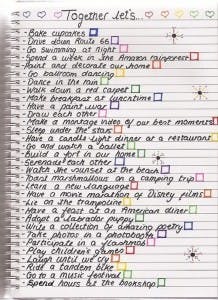 Together Let's...
- Bake cupcakes
- Drive down Route 66
- Go swimming at night
- Spend a week in the Amazon rainforest
- Paint and decorate our home
- Go ballroom dancing
- Dance in the rain
- Walk down a red carpet
- Make breakfast at dinnertime
- Have a paint war
- Draw each other
- Make a montage video of our best moments
- Sleep under the stars
- Have a candle light dinner at a restaurant
- Go and watch a ballet
- Build a fort in our home
- Serenade each other
- Watch the sunset at the beach
- Roast marshmallows on a camping trip
- Learn a new language
- Have a movie marathon of Disney films
- Lie on the trampoline
- Have a feast at an American diner
- Adopt a labrador puppy
- Write a collection of amazing poetry
- Take photos in a photobooth
- Participate in a flashmob
- Play children's games
- Laugh until we cry
- Ride a tandem bike
- Go to a music festival
- Spend hours at the bookshop